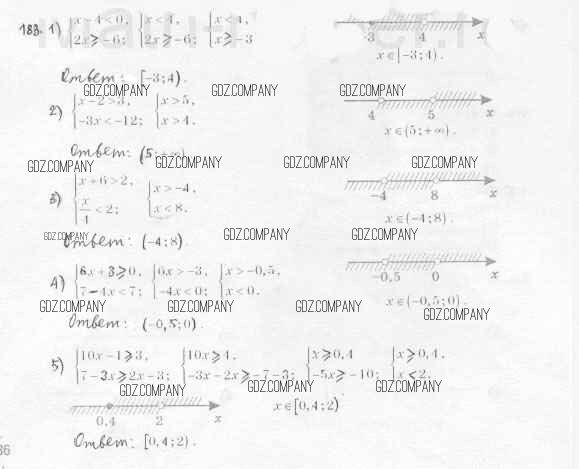 183. 1) { x - 4 < 0, 2x ⩾ -6; { x < 4, 2x ⩾ -6; { x < 4, x ⩾ -3
-3 4 x
x ∈ [-3; 4).
Ответ: [-3; 4).
GDZ.COMPANY GDZ.COMPANY GDZ.COMPANY
2) { x - 2 > 3, -3x < -12; { x > 5, x > 4.
4 5 x
x ∈ (5; +∞).
Ответ: (5; +∞)
GDZ.COMPANY GDZ.COMPANY GDZ.COMPANY GDZ.COMPANY
3) { x + 6 > 2, x/4 < 2; { x > -4, x < 8.
-4 8 x
x ∈ (-4; 8).
GDZ.COMPANY GDZ.COMPANY GDZ.COMPANY GDZ.COMPANY
Ответ: (-4; 8).
4) { 6x + 3 ⩾ 0, 7 - 4x < 7; { 6x > -3, -4x < 0; { x > -0,5, x < 0.
-0,5 0 x
x ∈ (-0,5; 0).
GDZ.COMPANY GDZ.COMPANY GDZ.COMPANY GDZ.COMPANY
Ответ: (-0,5; 0).
5) { 10x - 1 ⩾ 3, 7 - 3x ⩾ 2x - 3; { 10x ⩾ 4, -3x - 2x ⩾ -7 - 3; { x ⩾ 0,4 -5x ⩾ -10; { x ⩾ 0,4, x < 2.
GDZ.COMPANY GDZ.COMPANY GDZ.COMPANY
0,4 2 x
x ∈ [0,4; 2)
Ответ: [0,4; 2).
36